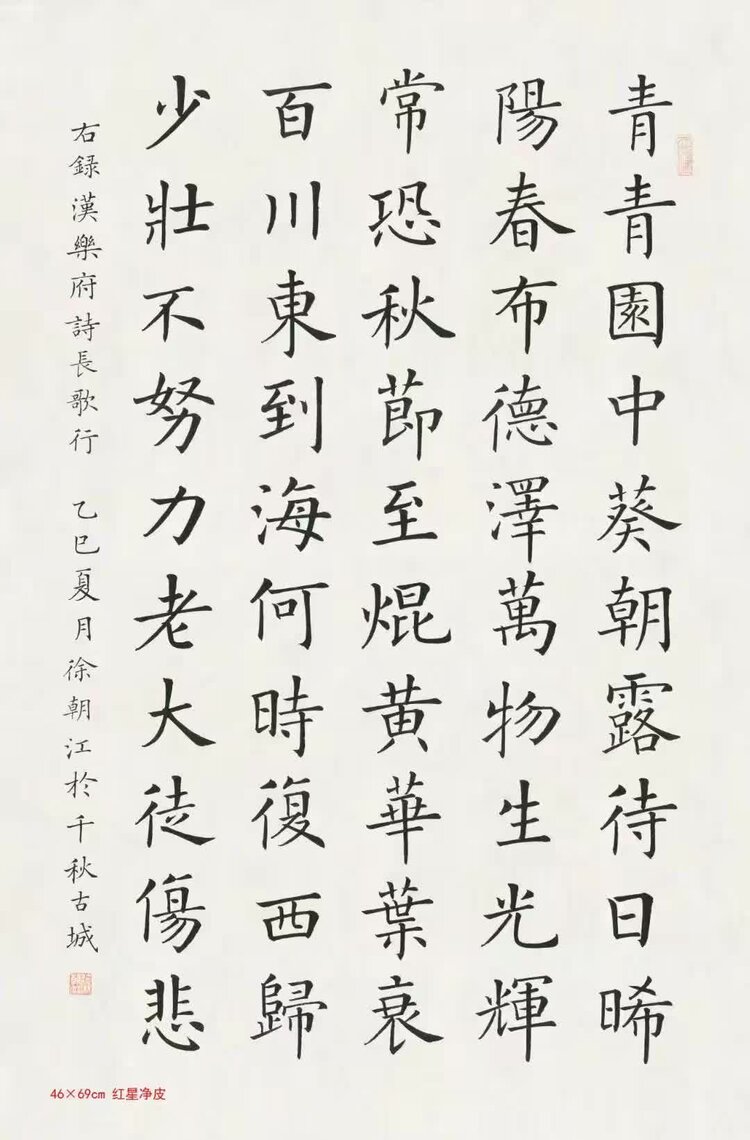 青青園中葵朝露待日晞
陽春布德澤萬物生光輝
常恐秋節至焜黄華葉衰
百川東到海何時復西歸
少壯不努力老大徒傷悲
右録漢樂府詩長歌行 乙巳夏月徐朝江於千秋古城
46×69cm 红星净皮